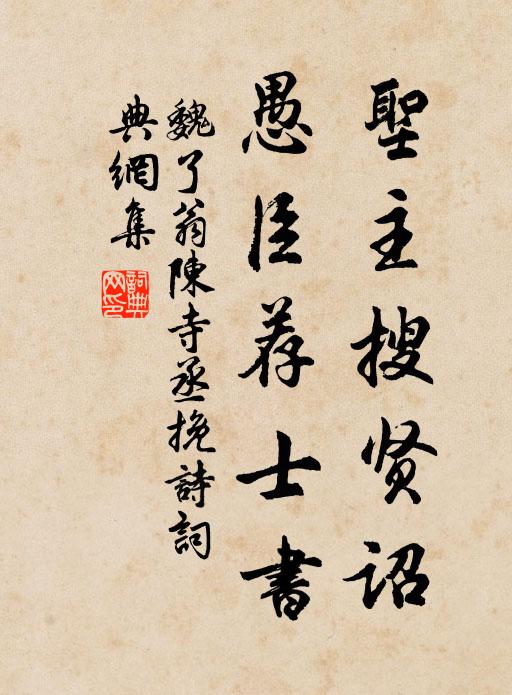 聖主搜贤诏
愚臣荐士書
魏了翁陳寺丞挽詩詞
典網集
詞典网印